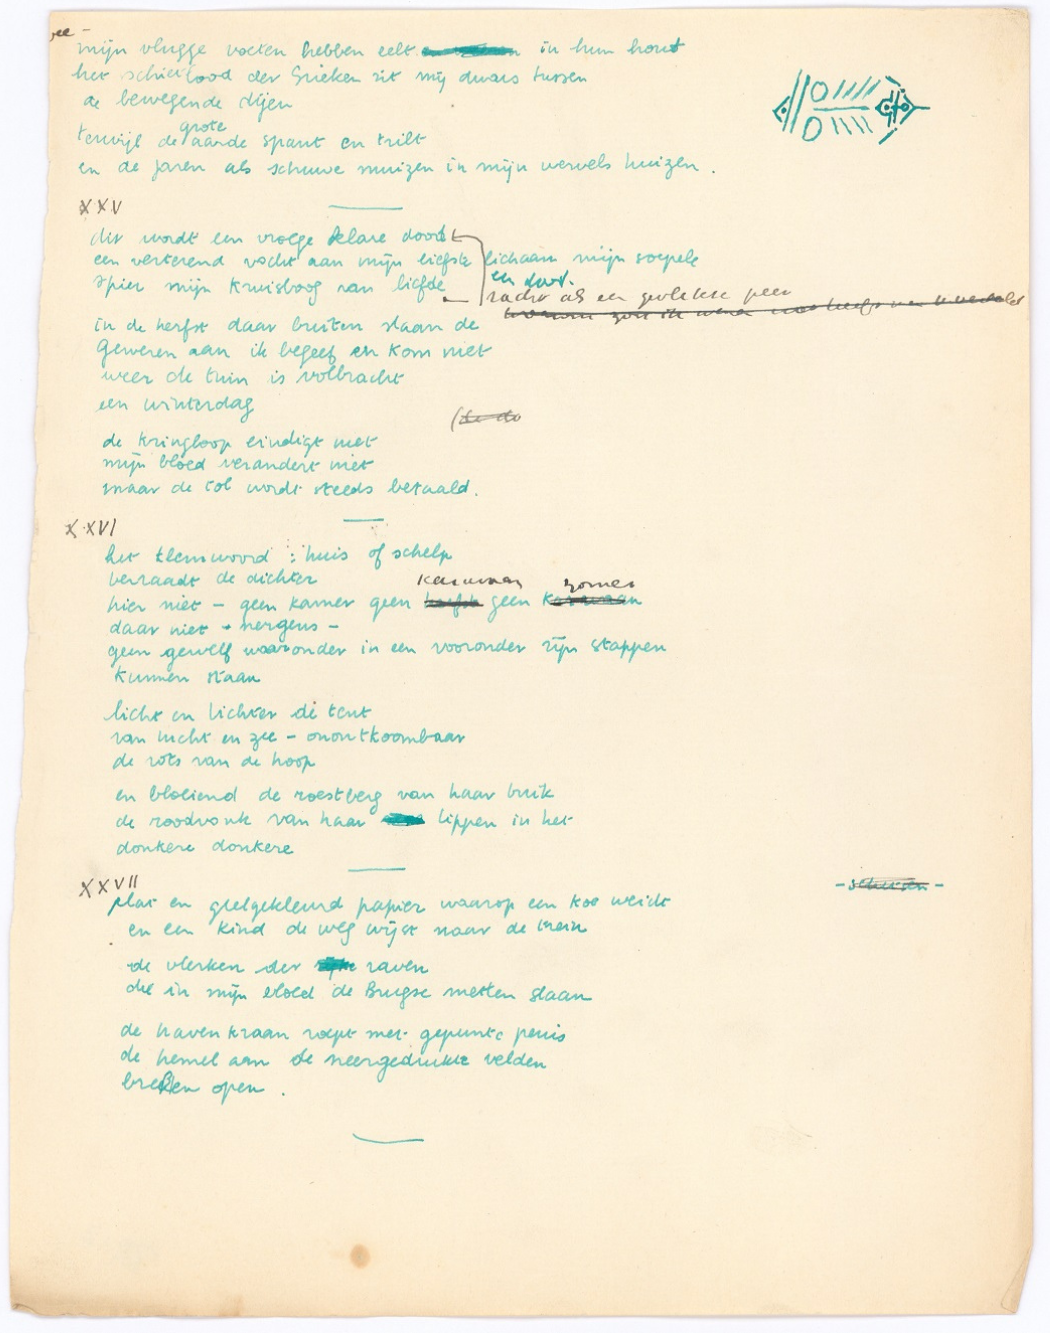 mijn vlugge voeten hebben eelt in hun hout
het schietlood der Grieken zit mij dwars tussen
de bewegende dijen
terwijl de grote aarde spant en trilt
en de jaren als schuwe muizen in mijn wervels huizen.
XXV
dit wordt een vroege klare dood
een verterend vocht aan mijn liefste lichaam mijn soepele
spier mijn kruisboog van liefde en dood.
zacht als een gevlekte peer
in de herfst daar buiten slaan de
geweren aan ik begeef en kom niet
weer de tuin is volbracht
een winterdag
de kringloop eindigt niet
mijn bloed verandert niet
maar de tol wordt steeds betaald.
XXVI
het klemwoord : huis of schelp
verraadt de dichter
hier niet – geen kamer geen karavaan geen zomer
daar niet – nergens –
geen gewelf waaronder in een vooronder zijn stappen
kunnen staan
licht en lichter de tent
van lucht en zee – onontkoombaar
de rots van de hoop
en bloeiend de roestberg van haar buik
de roodvonk van haar lippen in het
donkere donkere
XXVII
plat en geelgekleurd papier waarop een koe weidt
en een kind de weg wijst naar de trein
de vlerken der raven
die in mijn bloed de Brugse metten slaan
de havenkraan roept met gepunte penis
de hemel aan de neergedrukte velden
breken open.